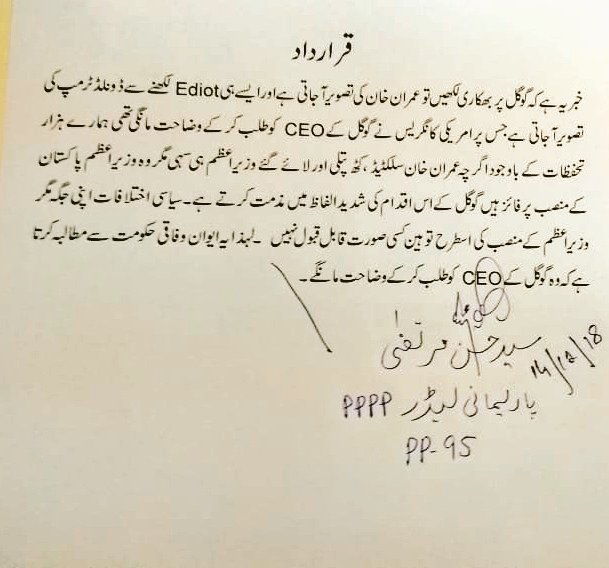 قرارداد
خبر یہ ہے کہ گوگل پر بھکاری لکھیں تو عمران خان کی تصویر آ جاتی ہے اور ایسے ہی Ediot لکھنے سے ڈونلڈ ٹرمپ کی
تصویر آ جاتی ہے جس پر امریکی کانگریس نے گوگل کے CEO کو طلب کر کے وضاحت مانگی تھی ہمارے ہزار
تحفظات کے باوجود اگرچہ عمران خان سلکٹیڈ، کٹھ پتلی اور لائے گئے وزیراعظم ہی سہی مگر وہ وزیراعظم پاکستان
کے منصب پر فائز ہیں گوگل کے اس اقدام کی شدید الفاظ میں مذمت کرتے ہے۔ سیاسی اختلافات اپنی جگہ مگر
وزیراعظم کے منصب کی اسطرح توہین کسی صورت قابل قبول نہیں ۔ لہذا یہ ایوان وفاقی حکومت سے مطالبہ کرتا
ہے کہ وہ گوگل کے CEO کو طلب کر کے وضاحت مانگے۔
سید حسن مرتضیٰ
14/12/18
پارلیمانی لیڈر PPPP
PP-95